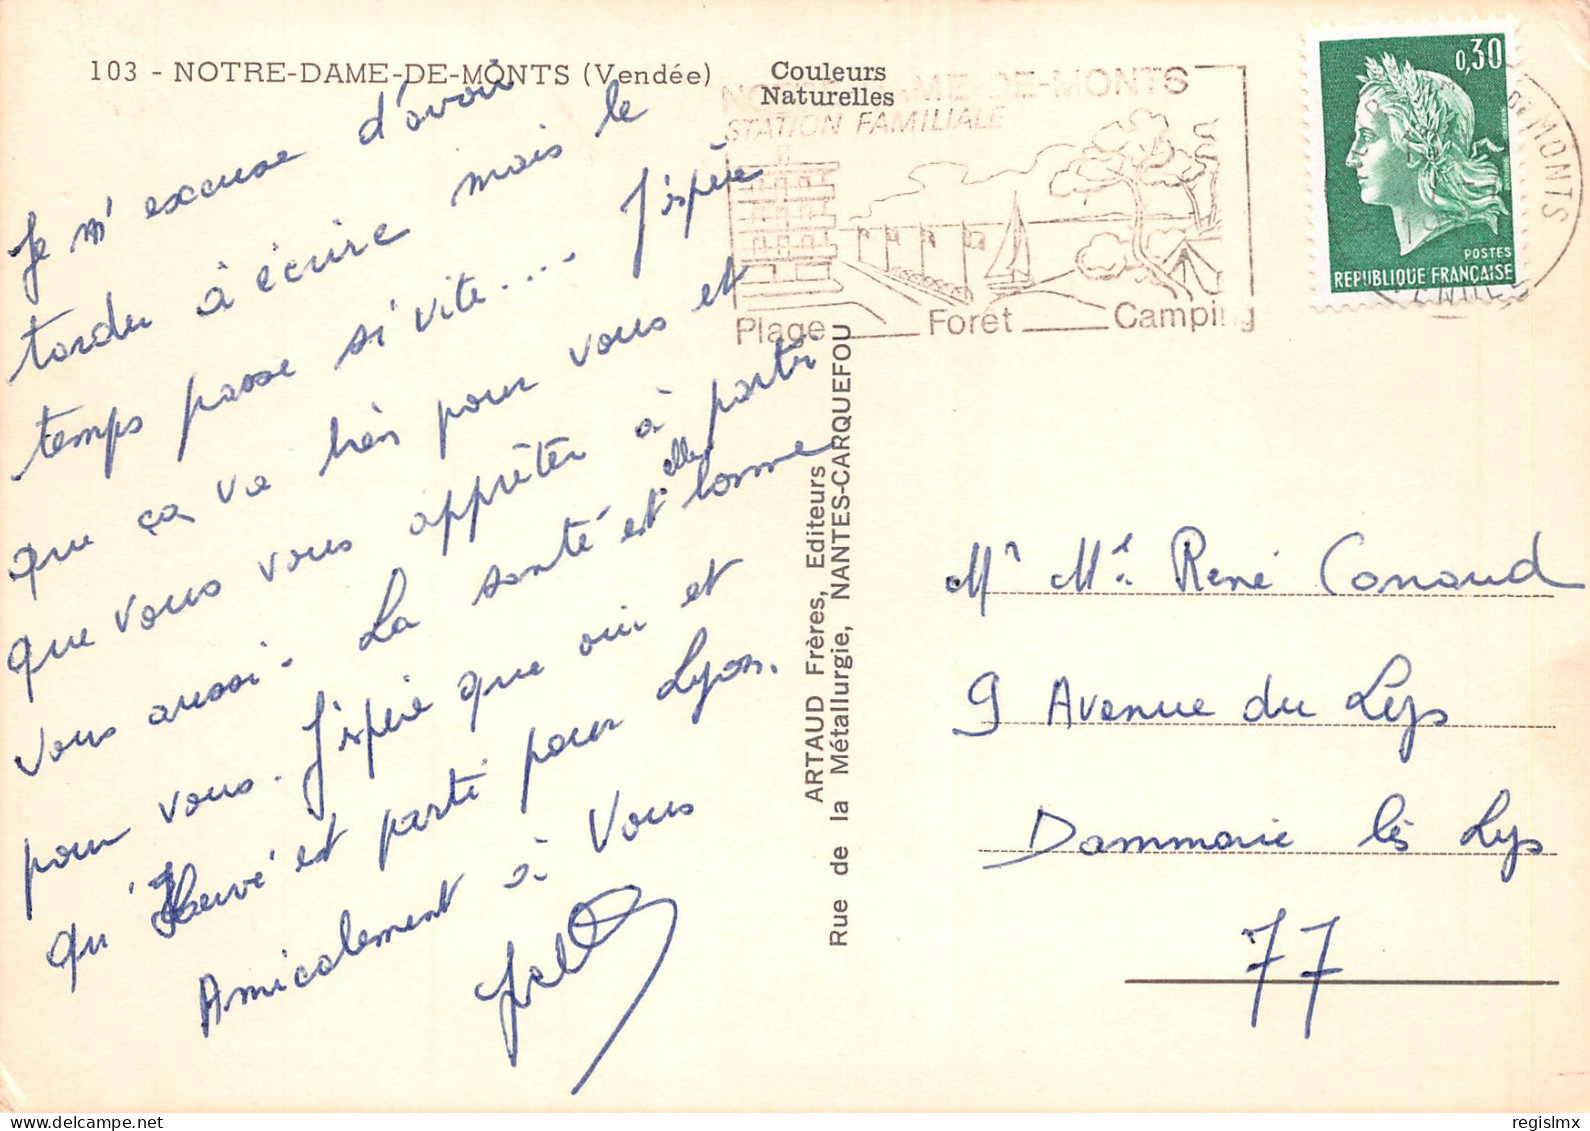 103 - NOTRE-DAME-DE-MONTS (Vendée)
Couleurs
Naturelles
Je m'excuse d'avoir
tarder à écrire mais le
temps passe si vite.... J'espère
que ça va bien pour vous et
que vous vous apprêter à partir
vous aussi. La santé est elle bonne
pour vous. J'espère que oui et
qu'Hervé est parti pour Lyon.
Amicalement à Vous
ARTAUD Frères, Editeurs
Rue de la Métallurgie, NANTES-CARQUEFOU
NOTRE-DAME-DE-MONTS
STATION FAMILIALE
Plage Forêt Camping
0,30
POSTES
REPUBLIQUE FRANÇAISE
DE MONTS
Mr Me René Conaud
9 Avenue du Lys
Dammarie lès Lys
77
regislmx